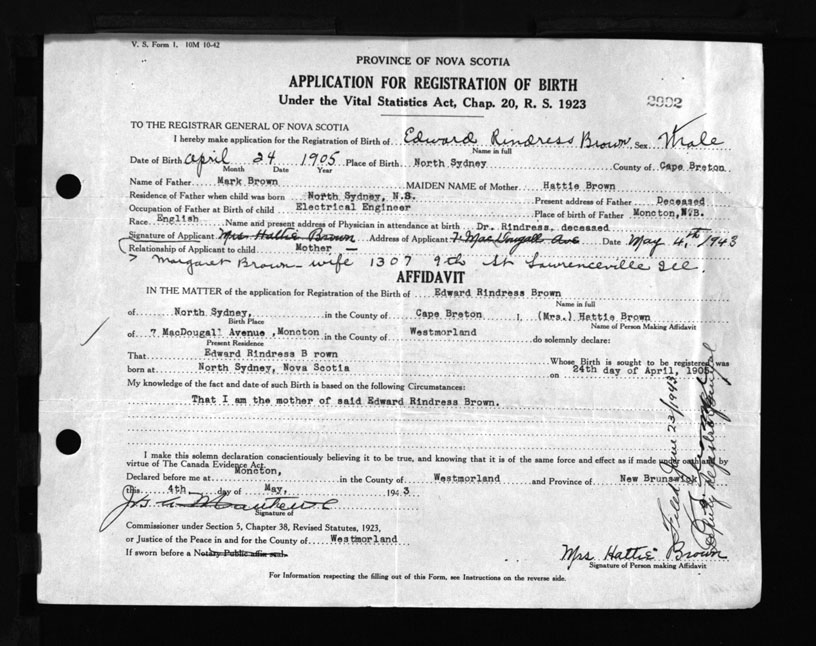 V. S. Form 1. 10M 10-42
PROVINCE OF NOVA SCOTIA
APPLICATION FOR REGISTRATION OF BIRTH
Under the Vital Statistics Act, Chap. 20, R. S. 1923
2992
TO THE REGISTRAR GENERAL OF NOVA SCOTIA
I hereby make application for the Registration of Birth of Edward Rindress Brown Sex Male
Name in full
Date of Birth April 24 1905 Place of Birth North Sydney County of Cape Breton
Month Date Year
Name of Father Mark Brown MAIDEN NAME of Mother Hattie Brown
Residence of Father when child was born North Sydney, N.S. Present address of Father Deceased
Occupation of Father at Birth of child Electrical Engineer Place of birth of Father Moncton,N.B.
Race English Name and present address of Physician in attendance at birth Dr. Rindress, deceased
Signature of Applicant Mrs Hattie Brown Address of Applicant 7 MacDougall Ave Date May 4th, 1943
Relationship of Applicant to child Mother
Margaret Brown - wife 1307 9th St Lawrenceville Ill.
AFFIDAVIT
IN THE MATTER of the application for Registration of the Birth of Edward Rindress Brown
Name in full
of North Sydney, in the County of Cape Breton I, (Mrs.) Hattie Brown
Birth Place Name of Person Making Affidavit
of 7 MacDougall Avenue ,Moncton in the County of Westmorland do solemnly declare:
Present Residence
That Edward Rindress B rown Whose Birth is sought to be registered was
born at North Sydney, Nova Scotia on 24th day of April, 1905
My knowledge of the fact and date of such Birth is based on the following Circumstances:
That I am the mother of said Edward Rindress Brown.
I make this solemn declaration conscientiously believing it to be true, and knowing that it is of the same force and effect as if made under oath and by
virtue of The Canada Evidence Act.
Declared before me at Moncton, in the County of Westmorland and Province of New Brunswick
this 4th day of May, 1943
Signature of
Commissioner under Section 5, Chapter 38, Revised Statutes, 1923,
or Justice of the Peace in and for the County of Westmorland
If sworn before a Notary Public affix seal.
Mrs Hattie Brown
Signature of Person making Affidavit
For Information respecting the filling out of this Form, see Instructions on the reverse side.
Filed June 23/1943
Deputy Registrar General